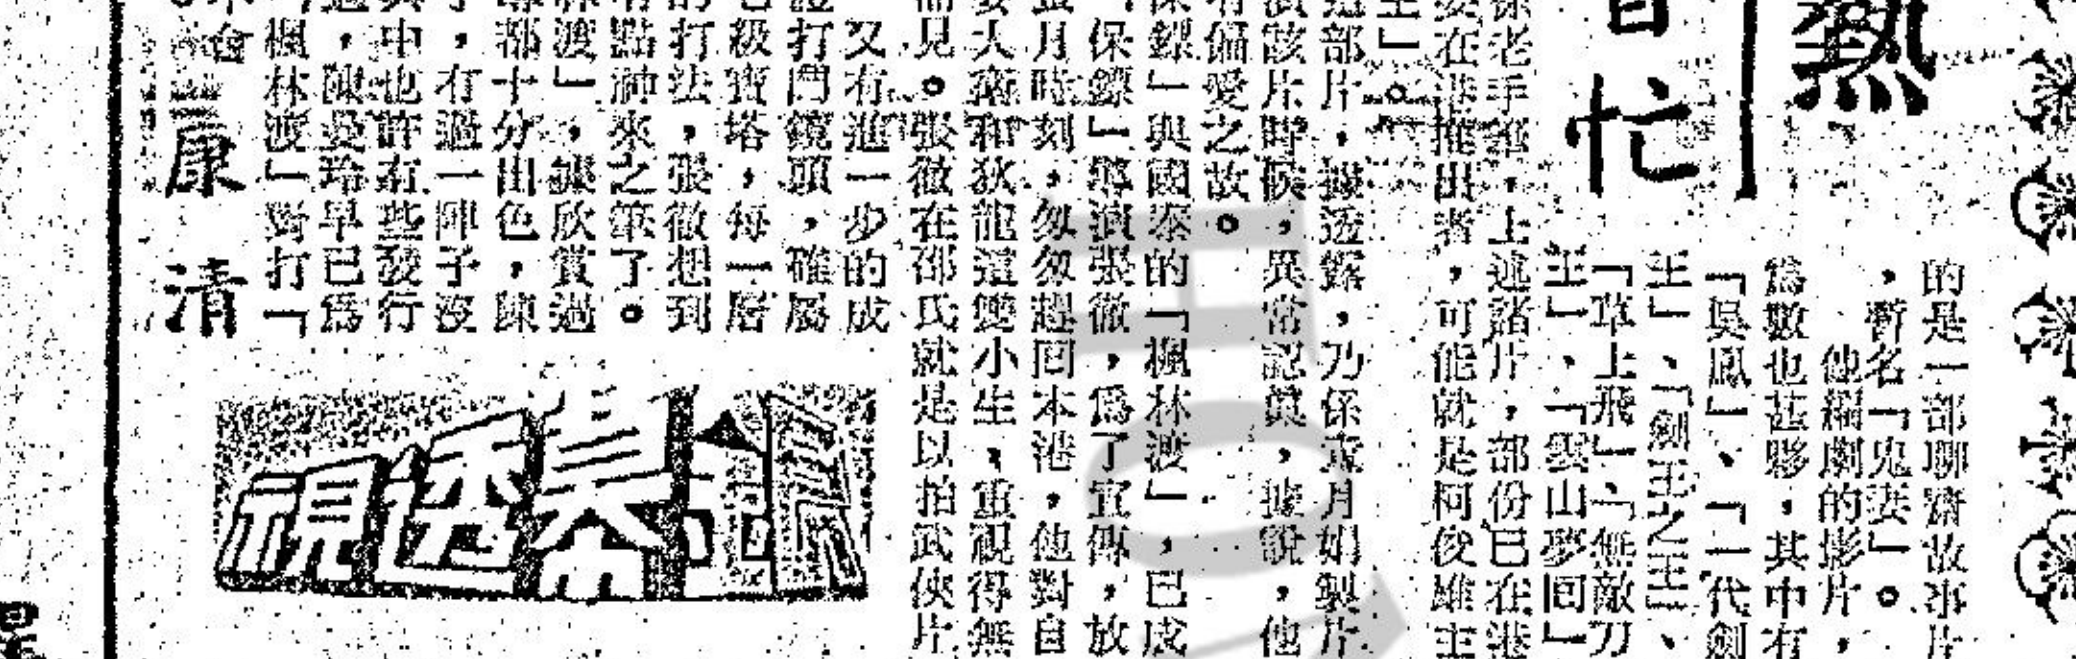 熱
日忙
的是一部聊齋故事片
，暫名「鬼妻」。
他編劇的影片，
為數也甚夥，其中有
「吳鳳」、「一代劍
王」、「劍王之王」、
「草上飛」、「無敵刀
王」、「雲山夢回」
徐老手筆，上述諸片，部份已在港
在港推出者，可能就是柯俊雄主
王」。
這部片，據透露，乃係袁月娟製片
演該片時候，異常認真，據說，他
有偏愛之故。
保鏢」與國泰的「楓林渡」，已成
「保鏢」導演張徹，為了宣傳，放
月時刻，匆匆趕回本港，他對自
大衛和狄龍這雙小生，重視得無
見。張徹在邵氏就是以拍武俠片
又有進一步的成
打鬥鏡頭，確屬
級寶塔，每一層
的打法，張徹想到
點神來之筆了。
渡」，據欣賞過
都十分出色，陳
，有過一陣子沒
中也許有些發行
，陳曼玲早已為
楓林渡」對打「
康清
銀幕透視